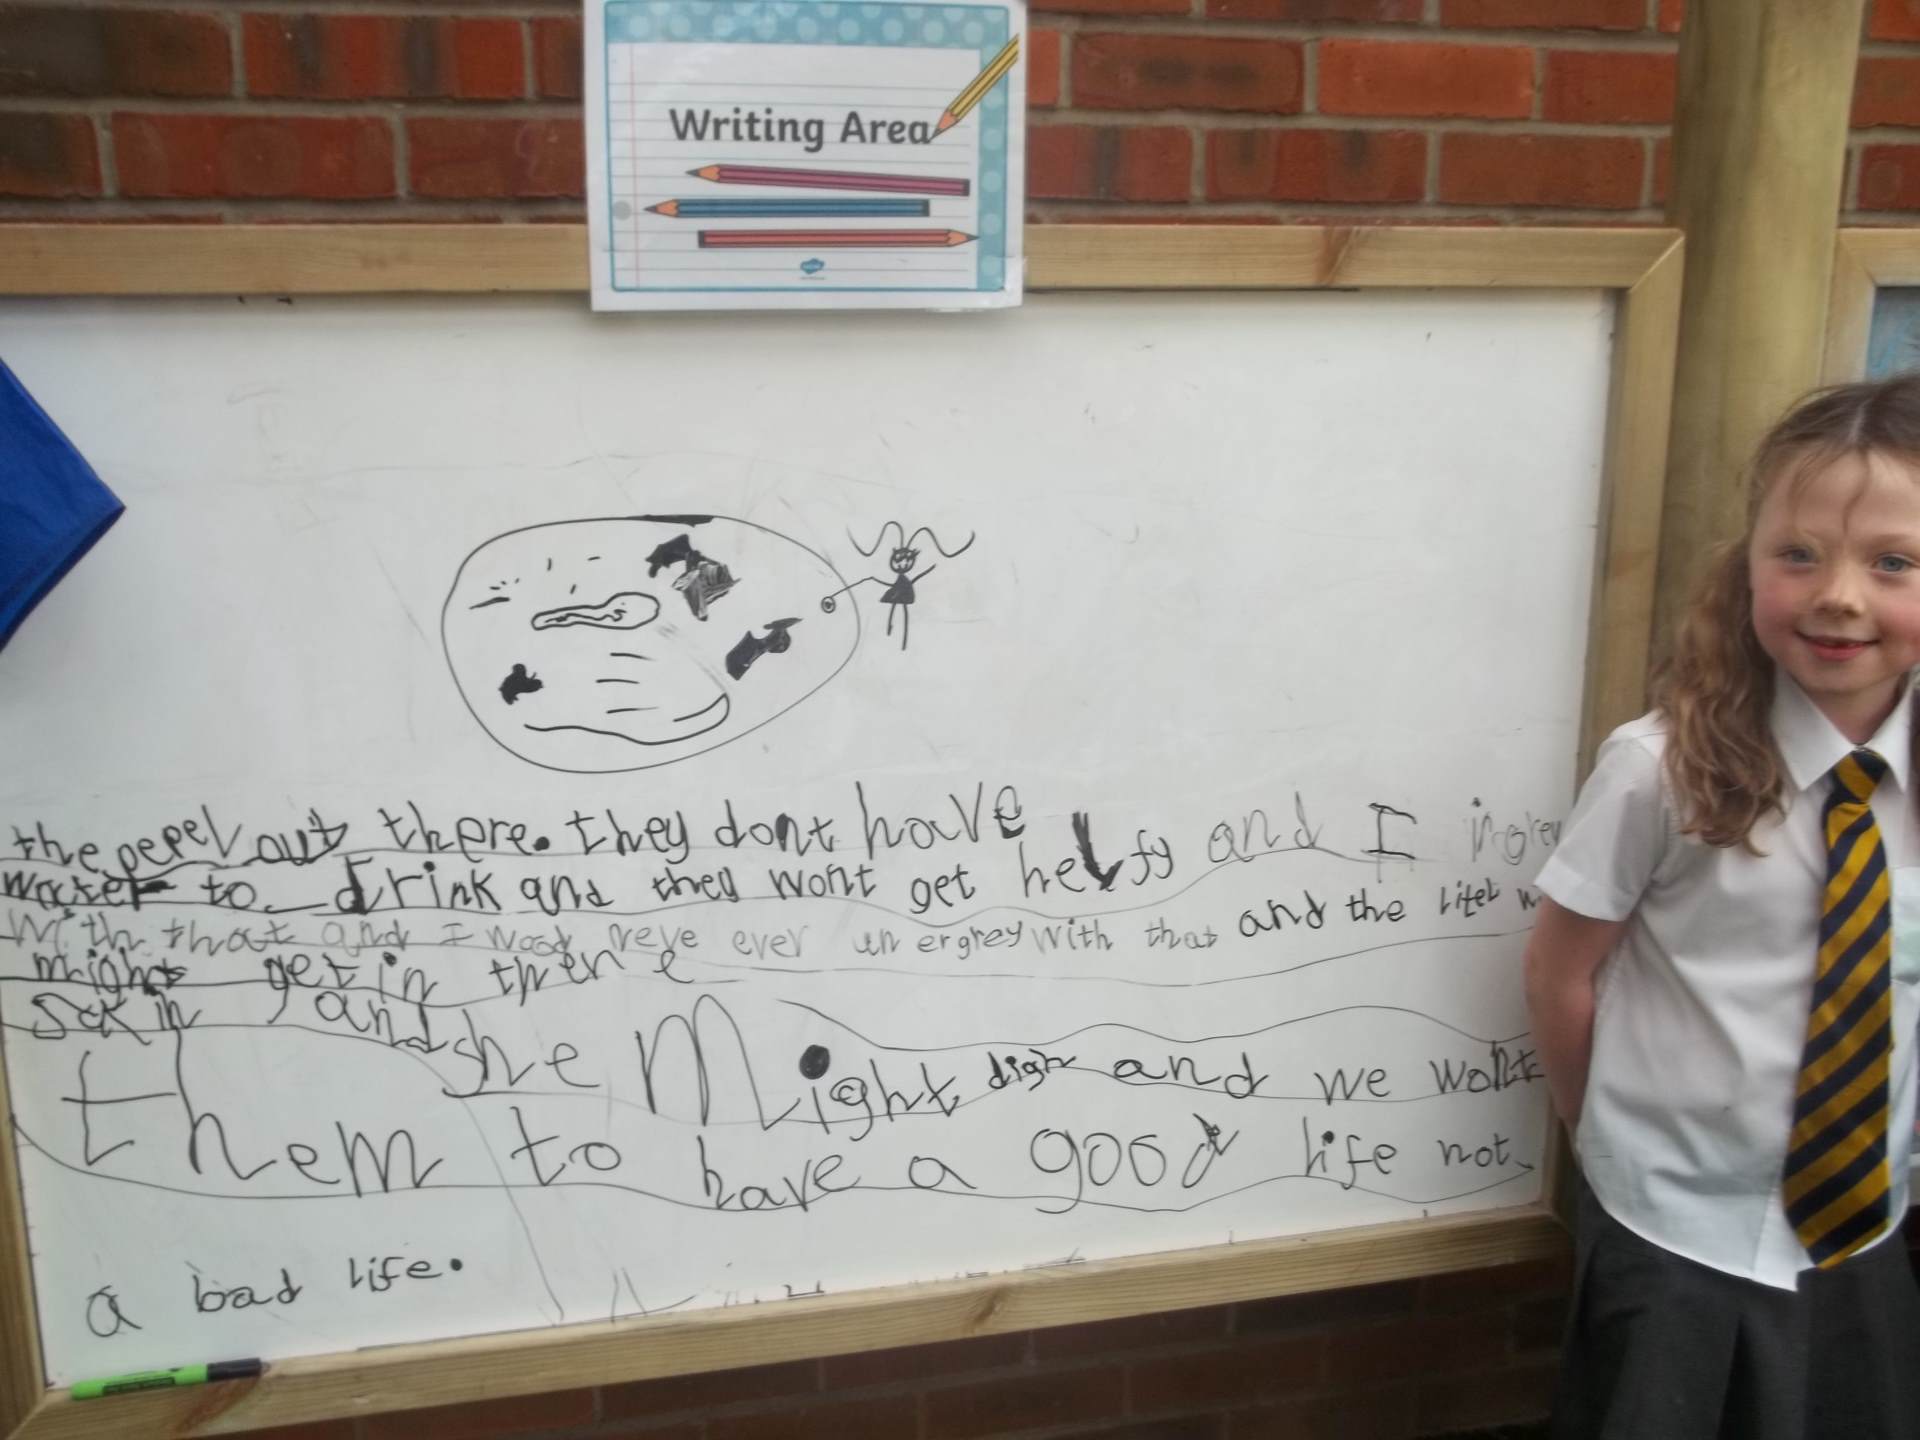 Writing Area
the pepel out there. they dont have
water to drink and they wont get helfy and I
with that and I wood neve ever un ergrey with that and the litel
might get in there
sck in and she Might digh and we wont
them to have a good life not
a bad life.